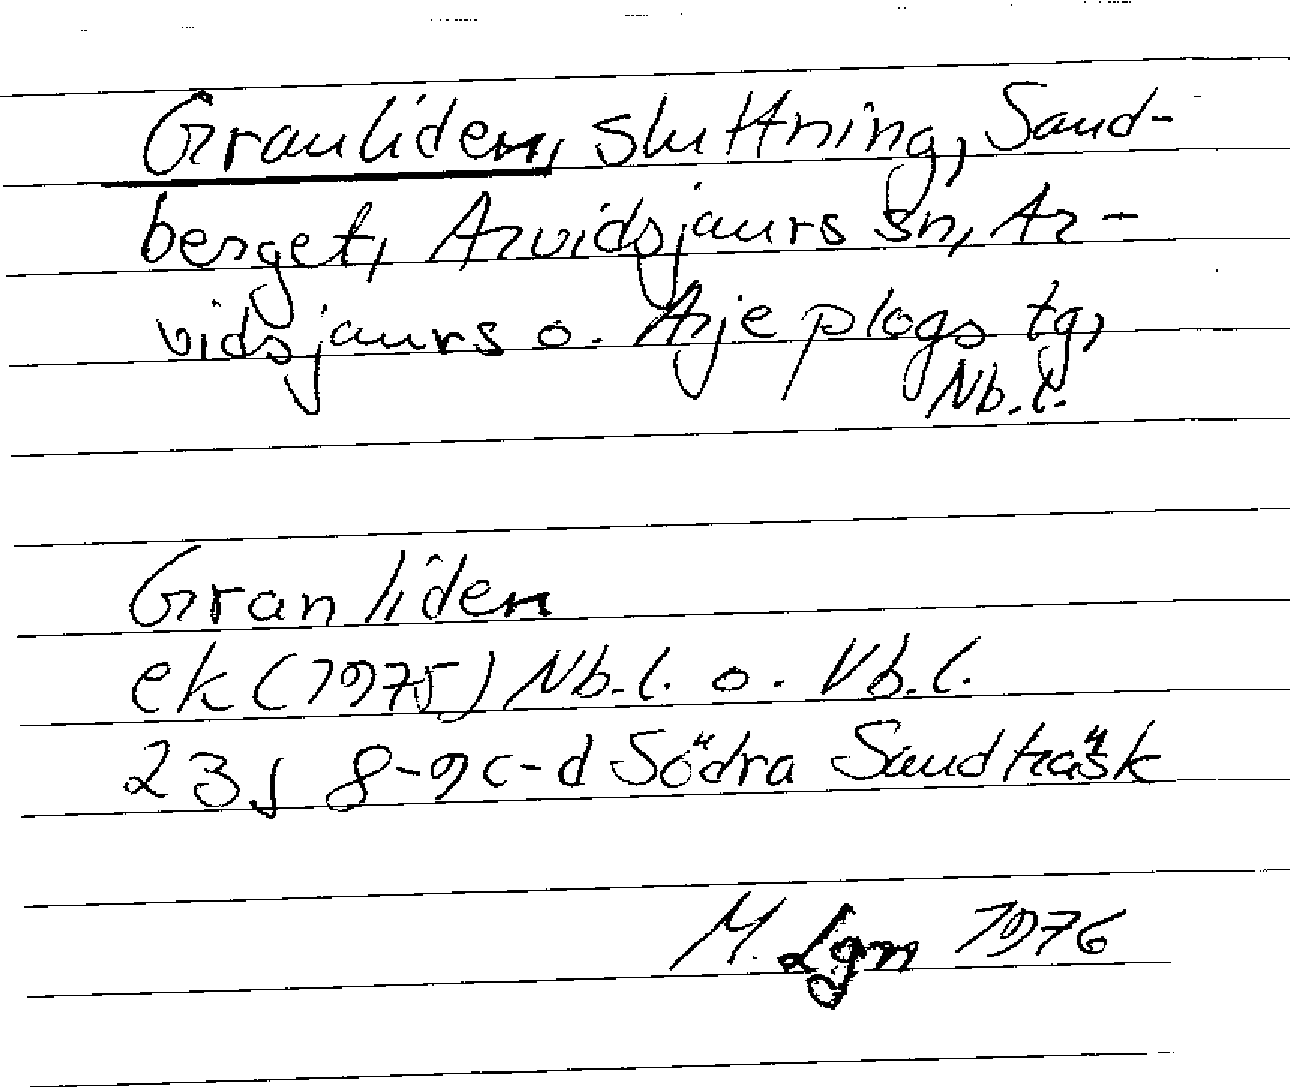 Granliden, sluttning, Sand-
berget, Arvidsjaurs sn, Ar-
vidsjaurs o. Arjeplogs tg,
Nb.l.
Granliden
ek (1975) Nb.l. o. Vb.l.
23J 8-9c-d Södra Sandträsk
M. Lgm 1976